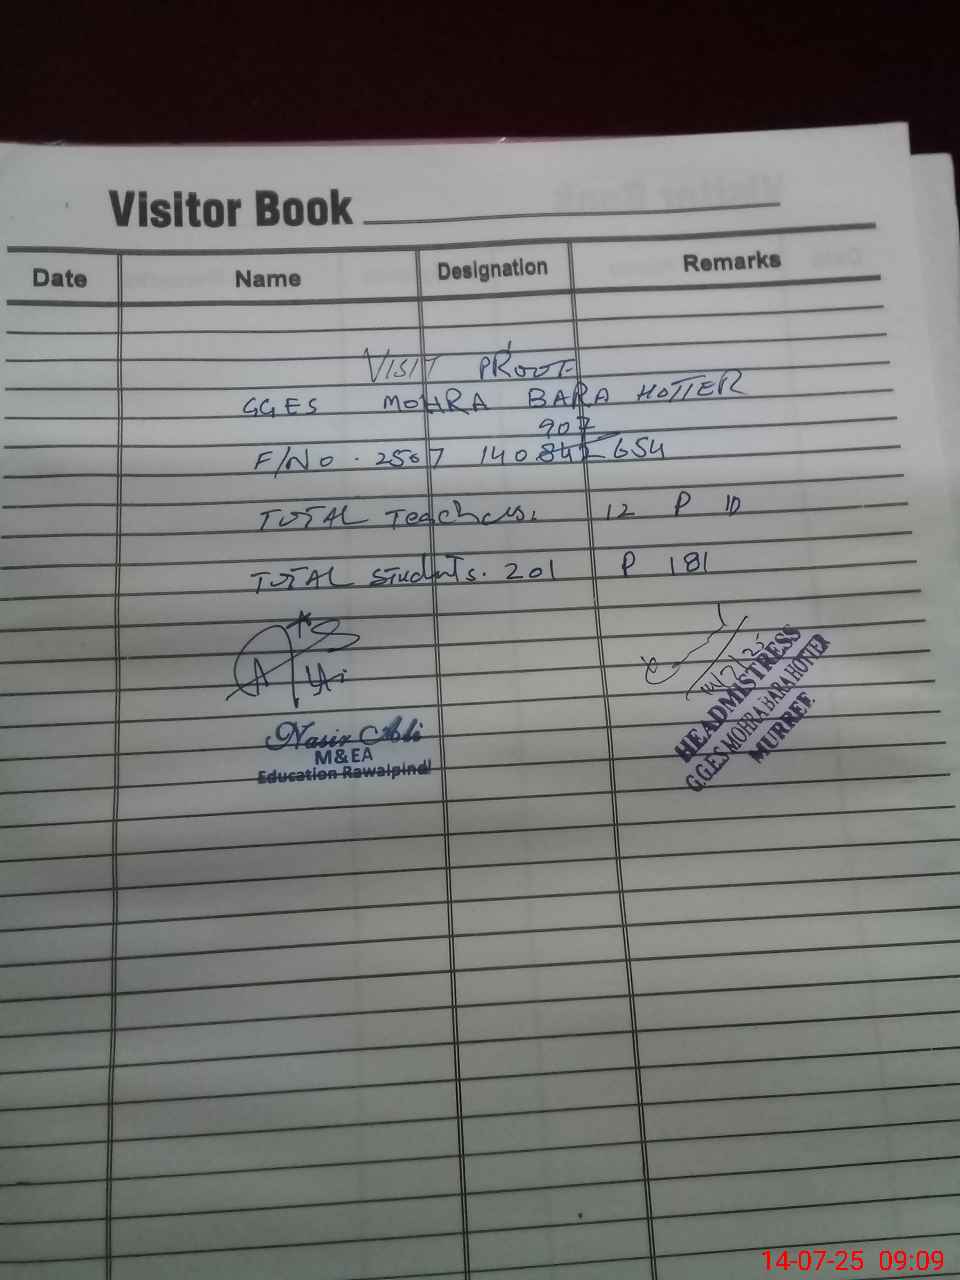 Visitor Book
Date Name Designation Remarks
VISIT PROOF
GGES MOHRA BARA HOTTER
902
F/NO. 2507 140842654
TOTAL Teachers. 12 P 10
TOTAL Students. 201 P 181
14/7/25
Nasir Ali
M&EA
Education Rawalpindi
HEADMISTRESS
G.G.E.S MOHRA BARA HOTTER
MURREE
14-07-25 09:09